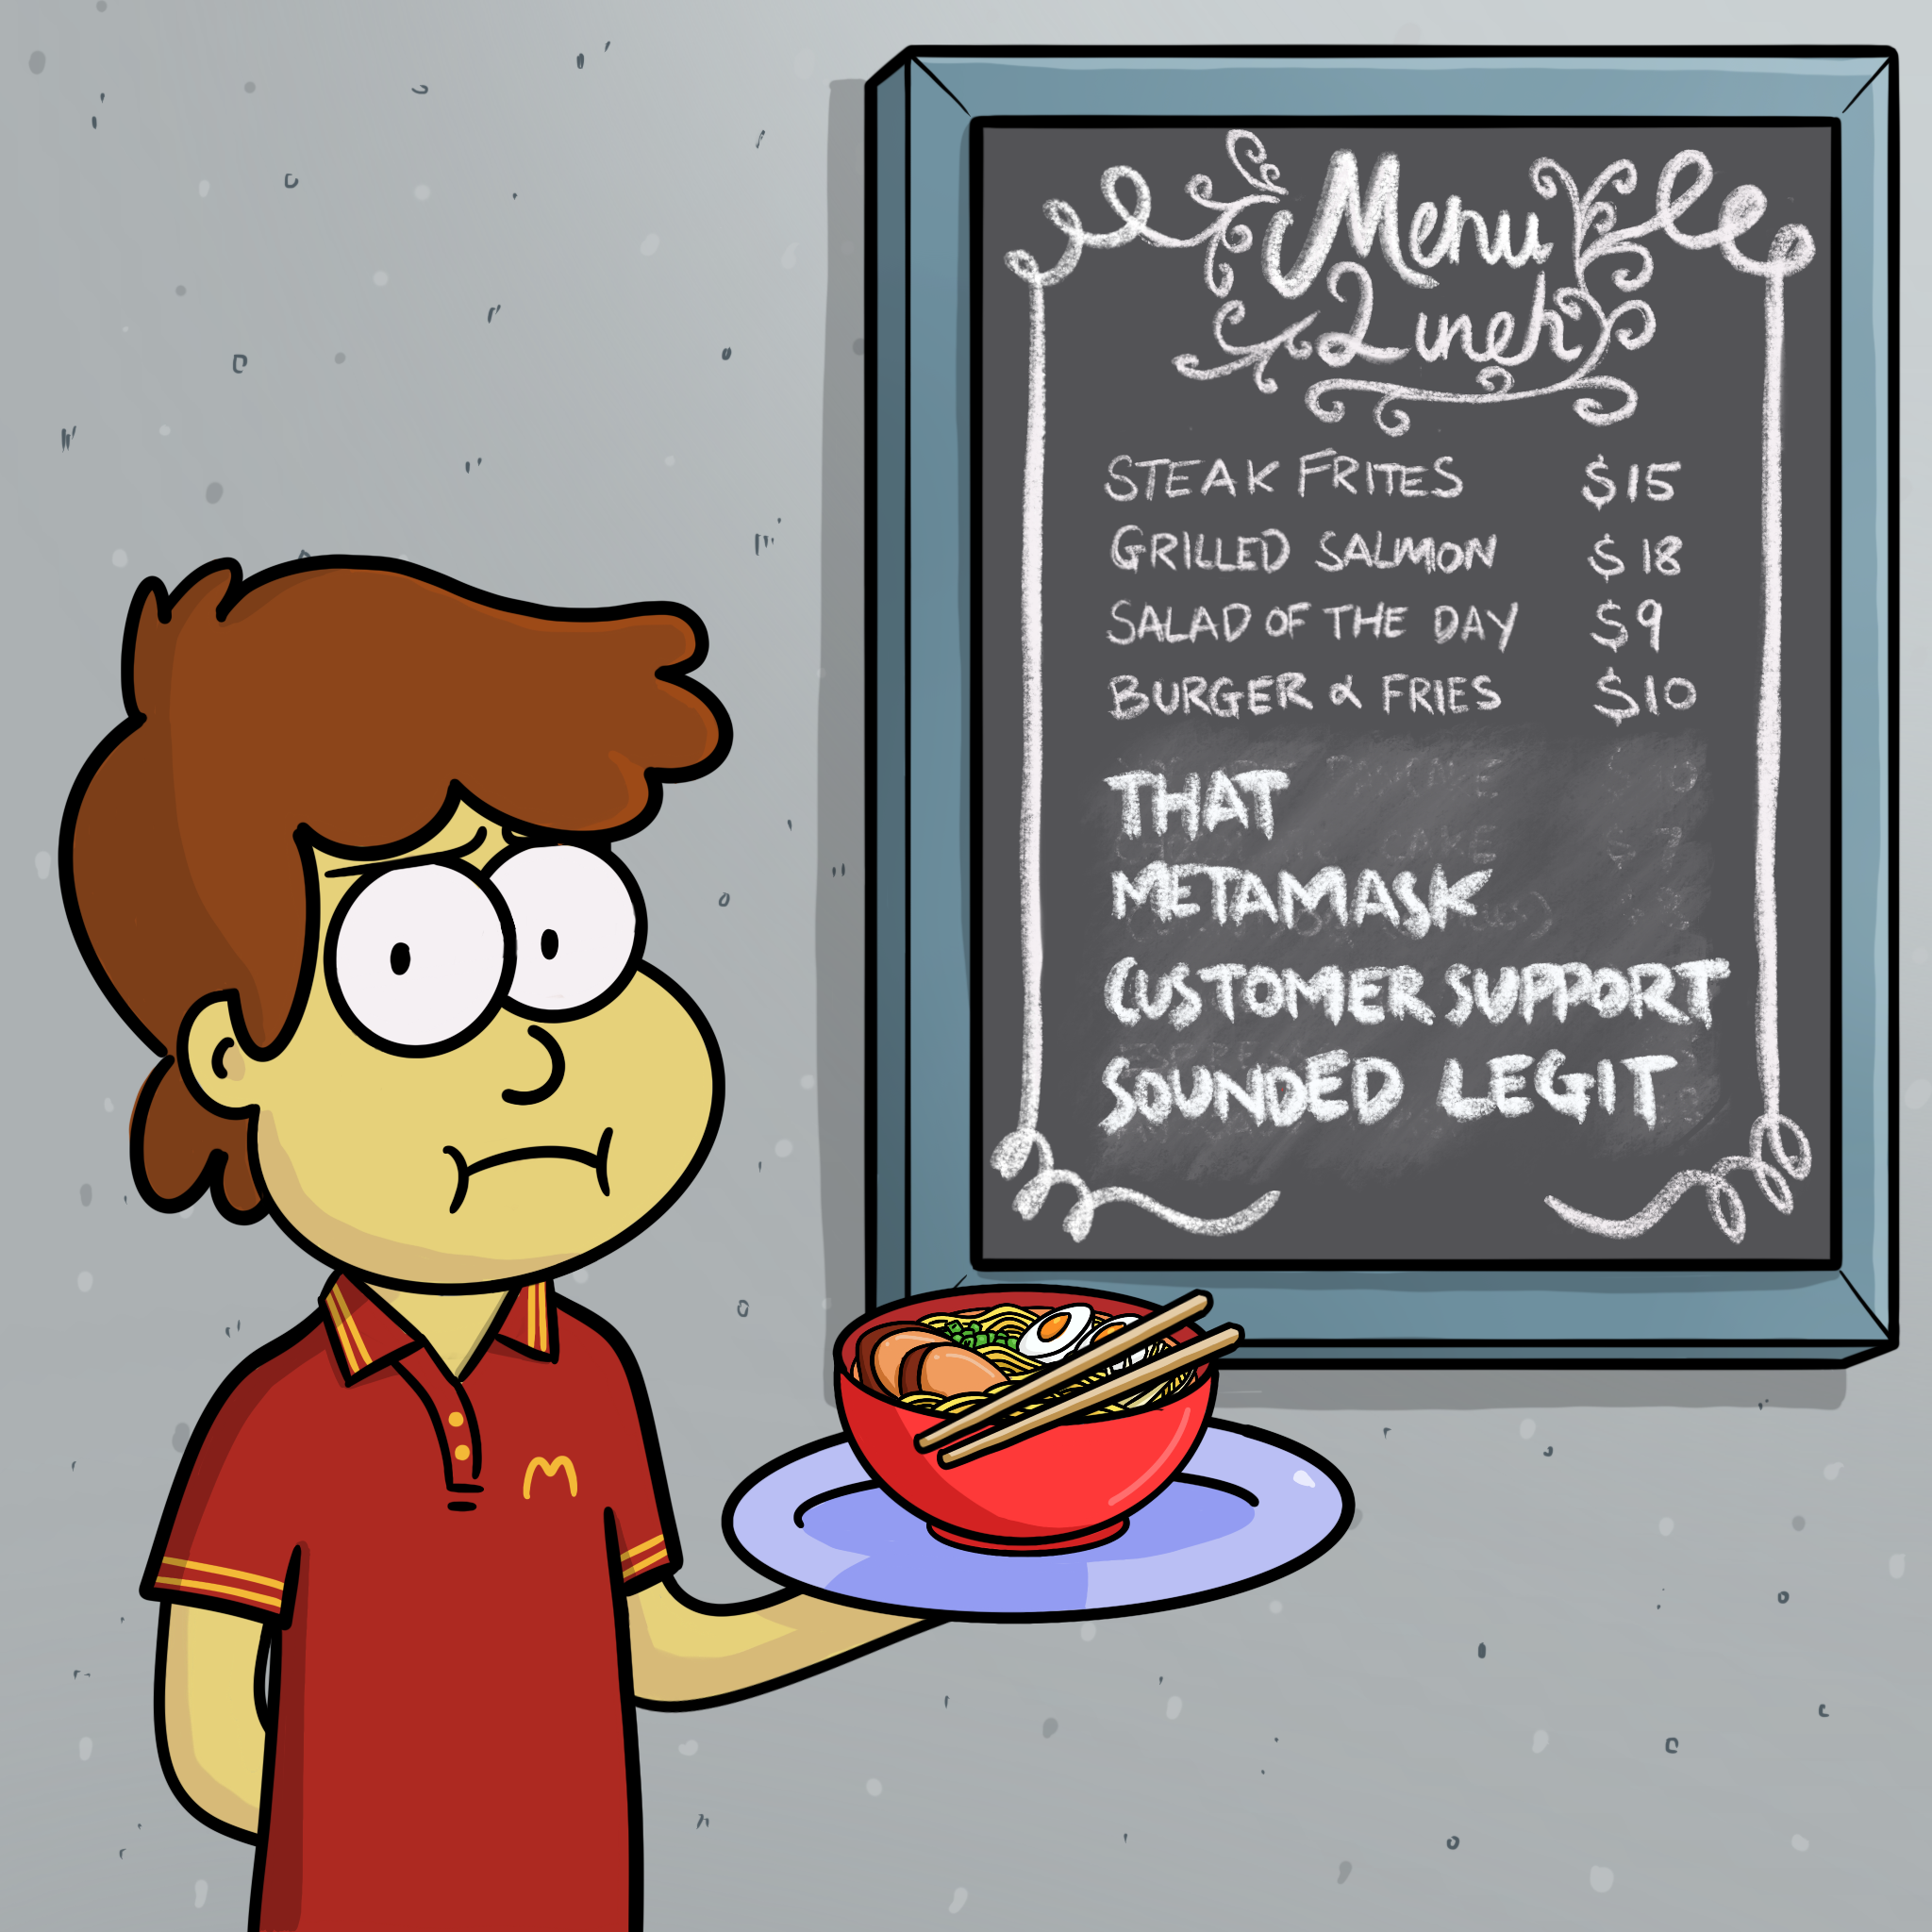 Menu
Lunch
STEAK FRITES $15
GRILLED SALMON $18
SALAD OF THE DAY $9
BURGER & FRIES $10
THAT
METAMASK
CUSTOMER SUPPORT
SOUNDED LEGIT
M